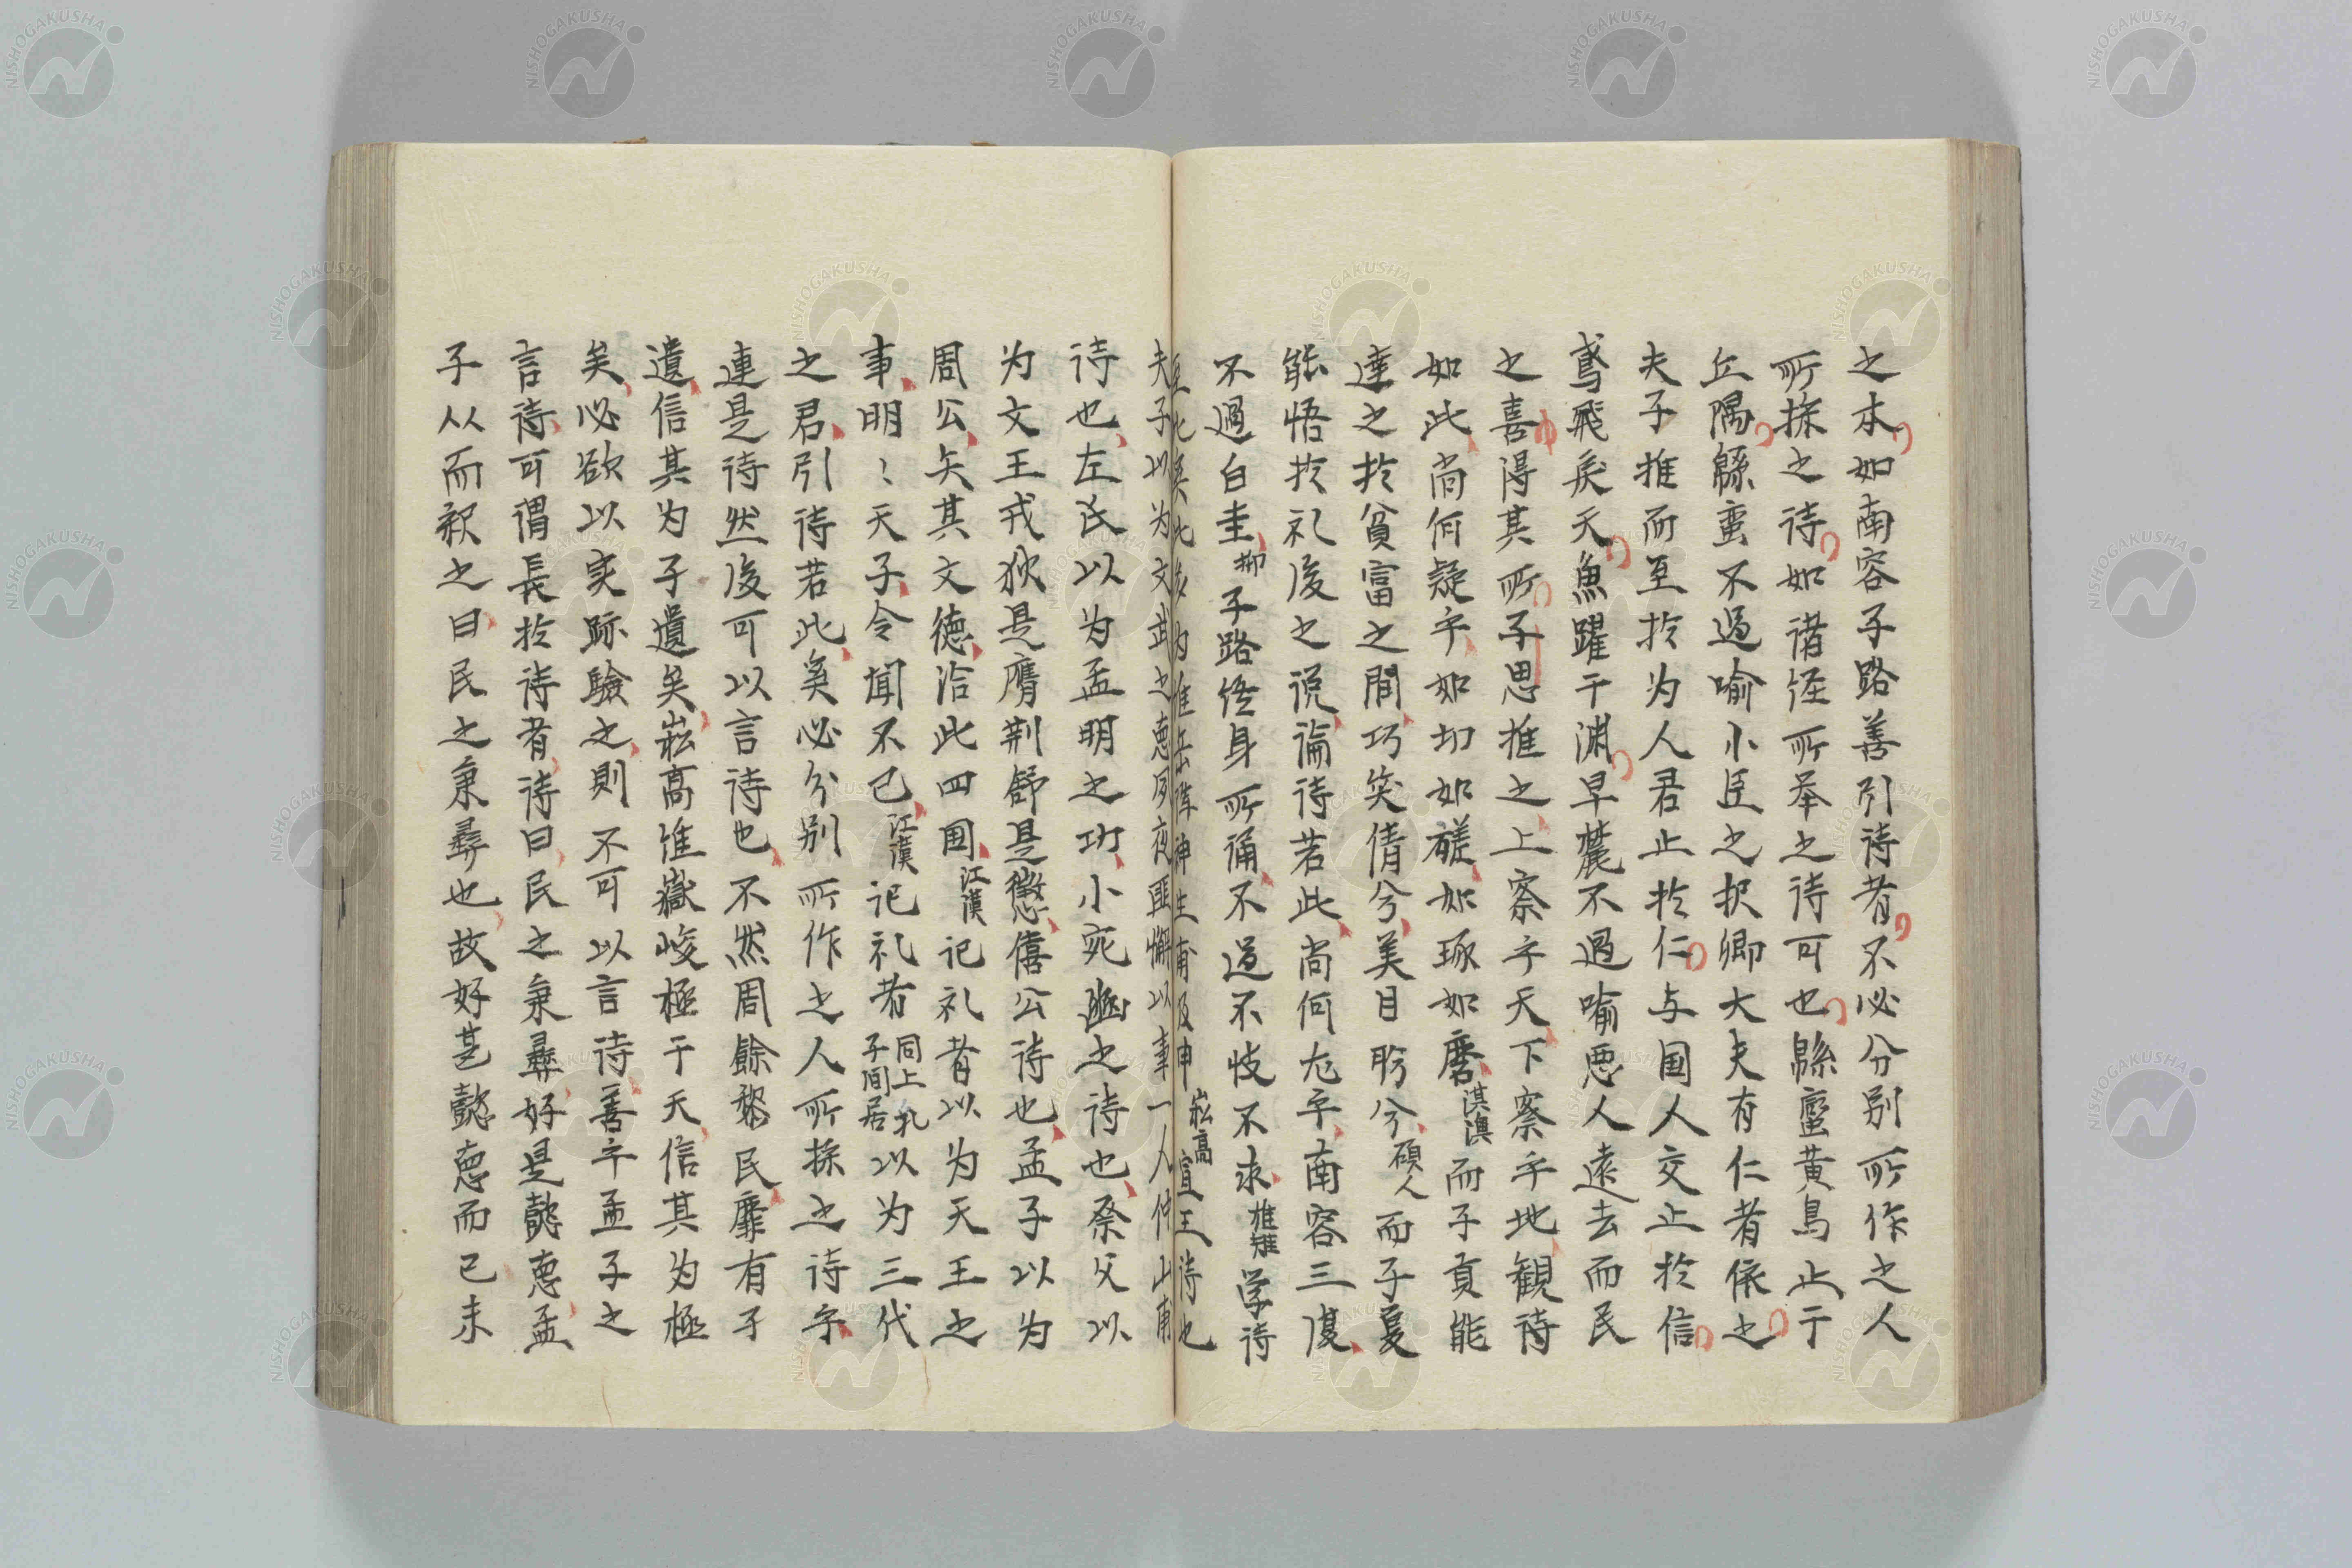 之本如南容子路善引诗者不必分别所作之人
所採之诗如诸侄所举之诗可也緜蛮黄鳥止于
丘隅緜蛮不過喻小臣之択卿大夫有仁者依之
夫子推而至扵为人君止扵仁与国人交止扵信
鳶飛戾天魚躍于渊旱麓不過喻悪人遠去而民
之喜得其所子思推之上察乎天下察乎地観诗
如此尚何疑乎如切如磋如琢如磨淇澳而子貢能
達之扵貧富之間巧笑倩兮美目盼兮碩人而子夏
能悟扵礼後之说論诗若此尚何尤乎南容三復
不過白圭抑子路终身所诵不過不忮不求雄雉学诗
至此矣此後为惟岳降神生甫及申崧高宣王诗也
夫子以为文武之徳夙夜匪懈以事一人仲山甫
诗也左氏以为孟明之功小宛幽之诗也祭父以
为文王戎狄是膺荆舒是懲僖公诗也孟子以为
周公矢其文徳洽此四国江漢记礼者以为天王之
事明〻天子令聞不已江漢记礼者同上孔子間居以为三代
之君引诗若此奚必分别所作之人所採之诗乎
連是诗然後可以言诗也不然周餘黎民靡有孑
遺信其为孑遺矣崧高惟嶽峻極于天信其为極
矣必欲以実跡驗之則不可以言诗善乎孟子之
言诗可謂長扵诗者诗曰民之秉彝好是懿徳孟
子从而釈之曰民之秉彝也故好甚懿徳而已未